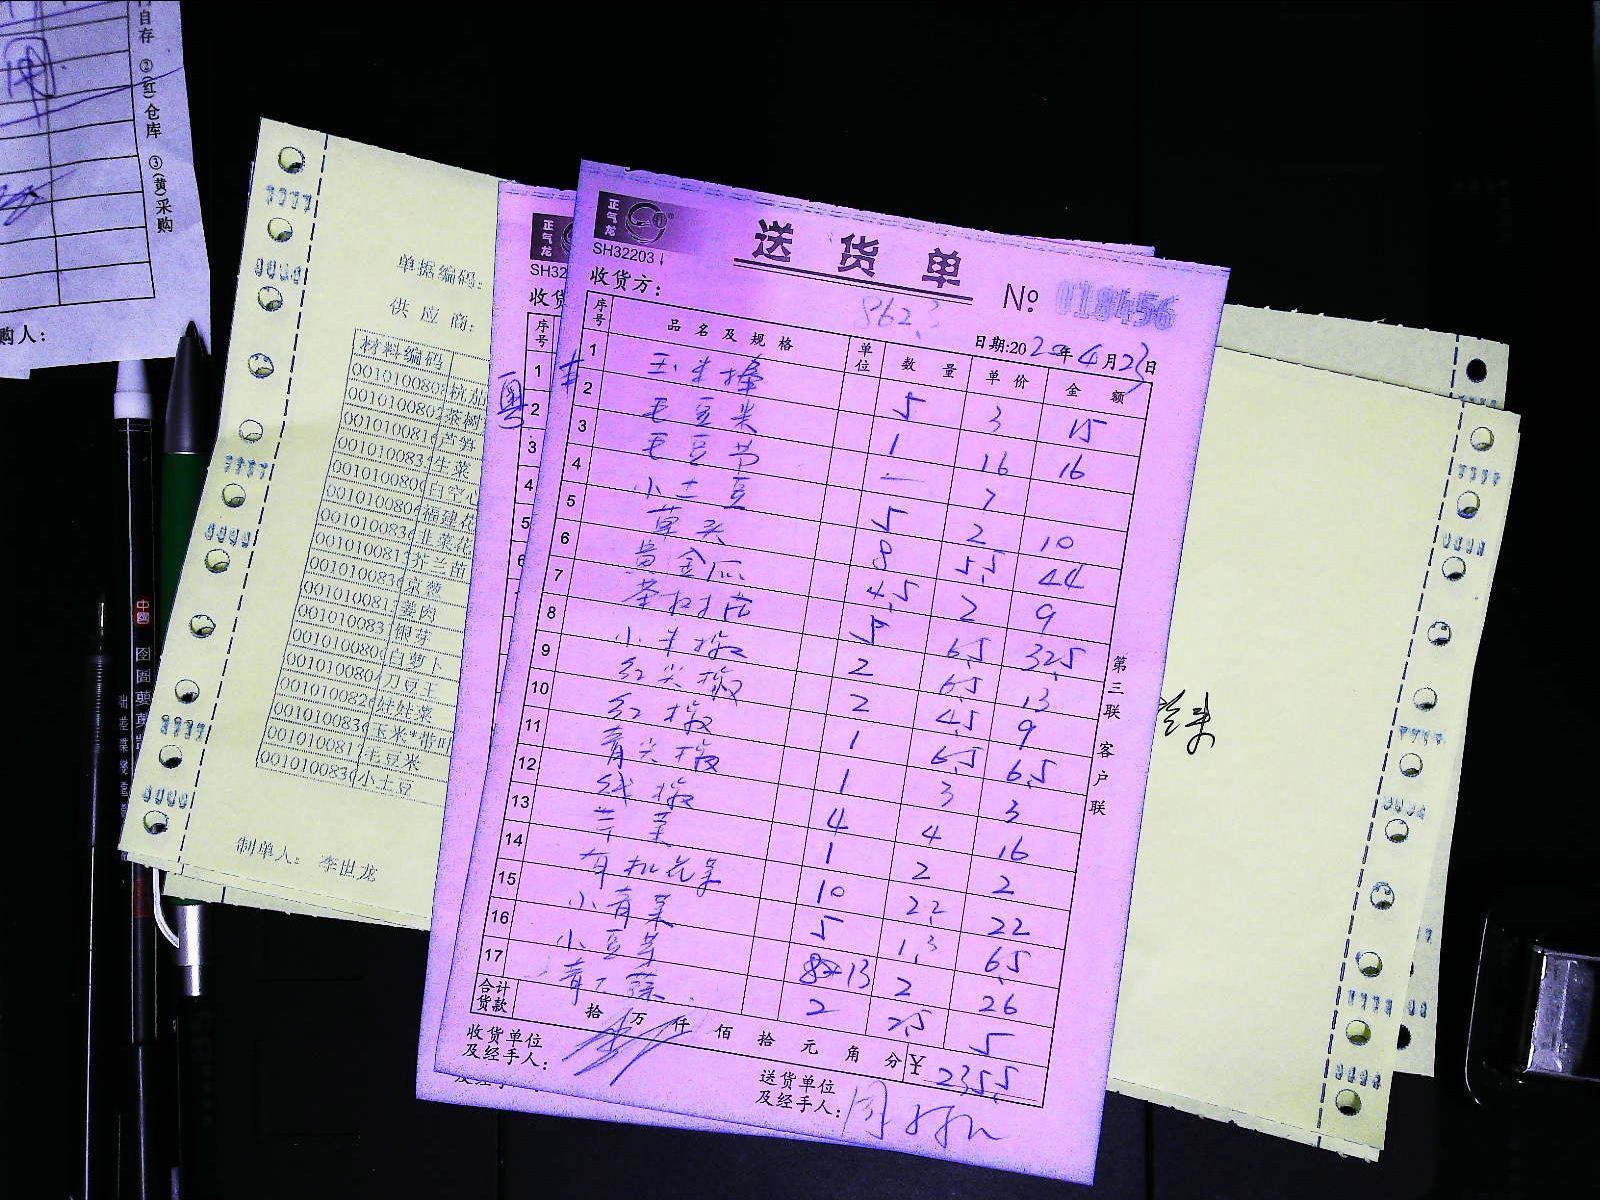 自存 ②(红)仓库 ③(黄)采购
购人：
单据编码：
供应商：
材料编码
0010100803 杭
0010100802 茶树
001010081 芦笋
001010083 生菜
001010080 白空心
001010080 福建花
001010083 韭菜花
001010081 芥兰苗
001010083 京葱
001010081 姜肉
001010083 银芽
001010080 白萝卜
001010080 刀豆王
001010082 娃娃菜
001010083 玉米*带
001010081 毛豆米
001010083 小土豆
制单人： 李世龙
正气龙
SH32
收货
序号
1
2
3
4
5
正气龙
SH32203
送货单
№ 018456
收货方：
8623
日期:2020年4月23日
序号 品名及规格 单位 数量 单价 金额
1 玉米棒 5 3 15
2 毛豆米 1 16 16
3 毛豆节 — 7
4 小土豆 5 2 10
5 草头 8 5.5 44
6 黄金瓜 4.5 2 9
7 茶树菇 5 6.5 32.5
8 小米椒 2 6.5 13
9 红尖椒 2 4.5 9
10 红椒 1 6.5 6.5
11 青尖椒 1 3 3
12 线椒 4 4 16
13 芹菜 1 2 2
14 有机花菜 10 2.2 22
15 小青菜 5 1.3 6.5
16 小豆芽 13 2 26
17 青大蒜 2 2.5 5
合计货款 拾 万 仟 佰 拾 元 角 分 ¥ 235.5
收货单位及经手人：
送货单位及经手人：
第三联 客户联
中国